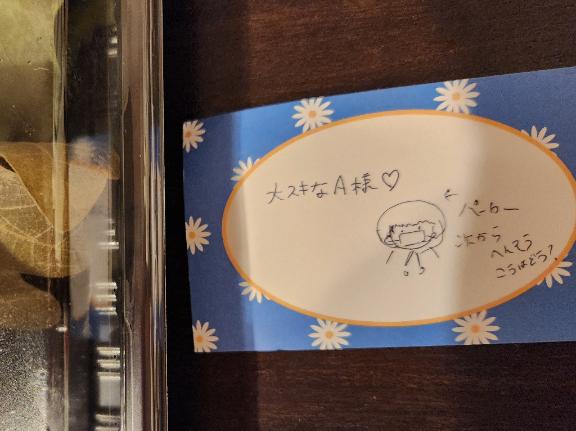 大スキなA様♡
←パーカー
次から
へんそう
こうはどう?